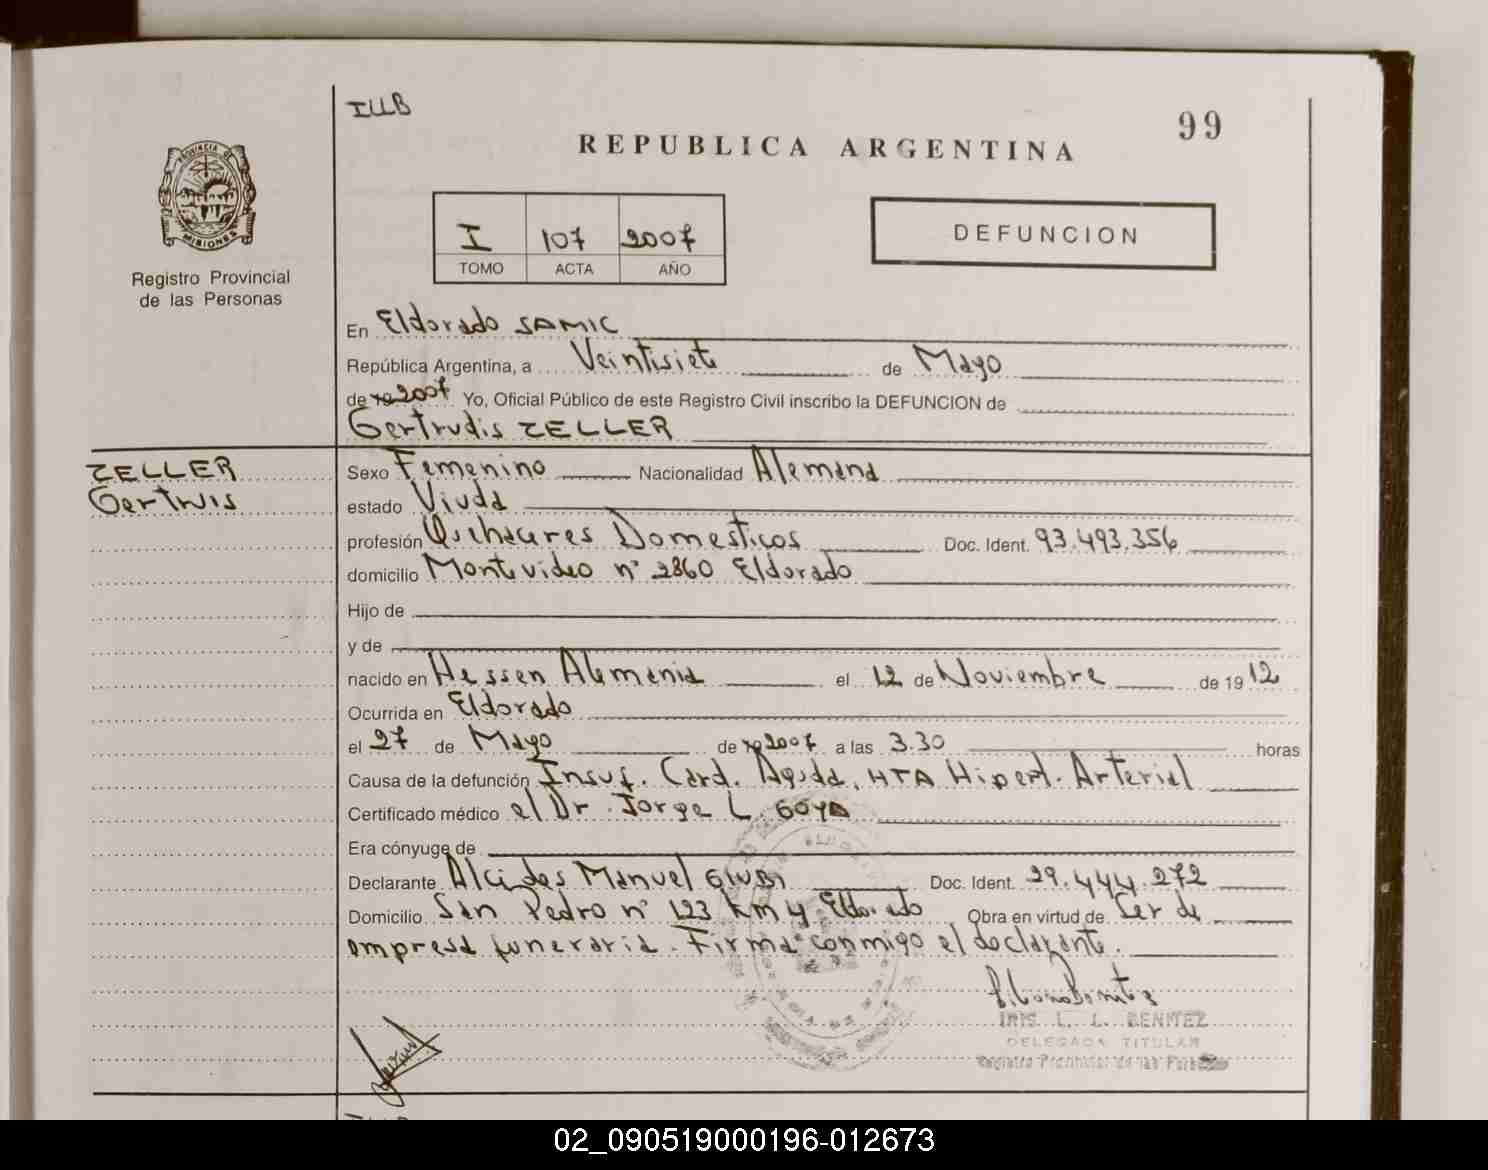 ILLB
99
REPUBLICA ARGENTINA
PROVINCIA DE
MISIONES
Registro Provincial
de las Personas
I 107 2007
TOMO ACTA AÑO
DEFUNCION
En Eldorado SAMIC
República Argentina, a Veintisiete de Mayo
de 19 2007 Yo, Oficial Público de este Registro Civil inscribo la DEFUNCION de
Gertrudis ZELLER
ZELLER
Gertruis
Sexo Femenino Nacionalidad Alemana
estado Viuda
profesión Quehaceres Domesticos Doc. Ident. 93.493.356
domicilio Montevideo n° 2860 Eldorado
Hijo de
y de
nacido en Hessen Alemania el 12 de Noviembre de 19 12
Ocurrida en Eldorado
el 27 de Mayo de 19 2007 a las 3.30 horas
Causa de la defunción Insuf. Card. Aguda, HTA Hipert. Arterial
Certificado médico el Dr. Jorge L. GOYA
Era cónyuge de
Declarante Alcides Manuel Doc. Ident. 29.444.272
Domicilio San Pedro n° 123 Km 4 Eldorado Obra en virtud de Ser de
empresa funeraria. Firma conmigo el declarante.
IRIS L. L. BENITEZ
DELEGADA TITULAR
Registro Provincial de las Personas
02_090519000196-012673